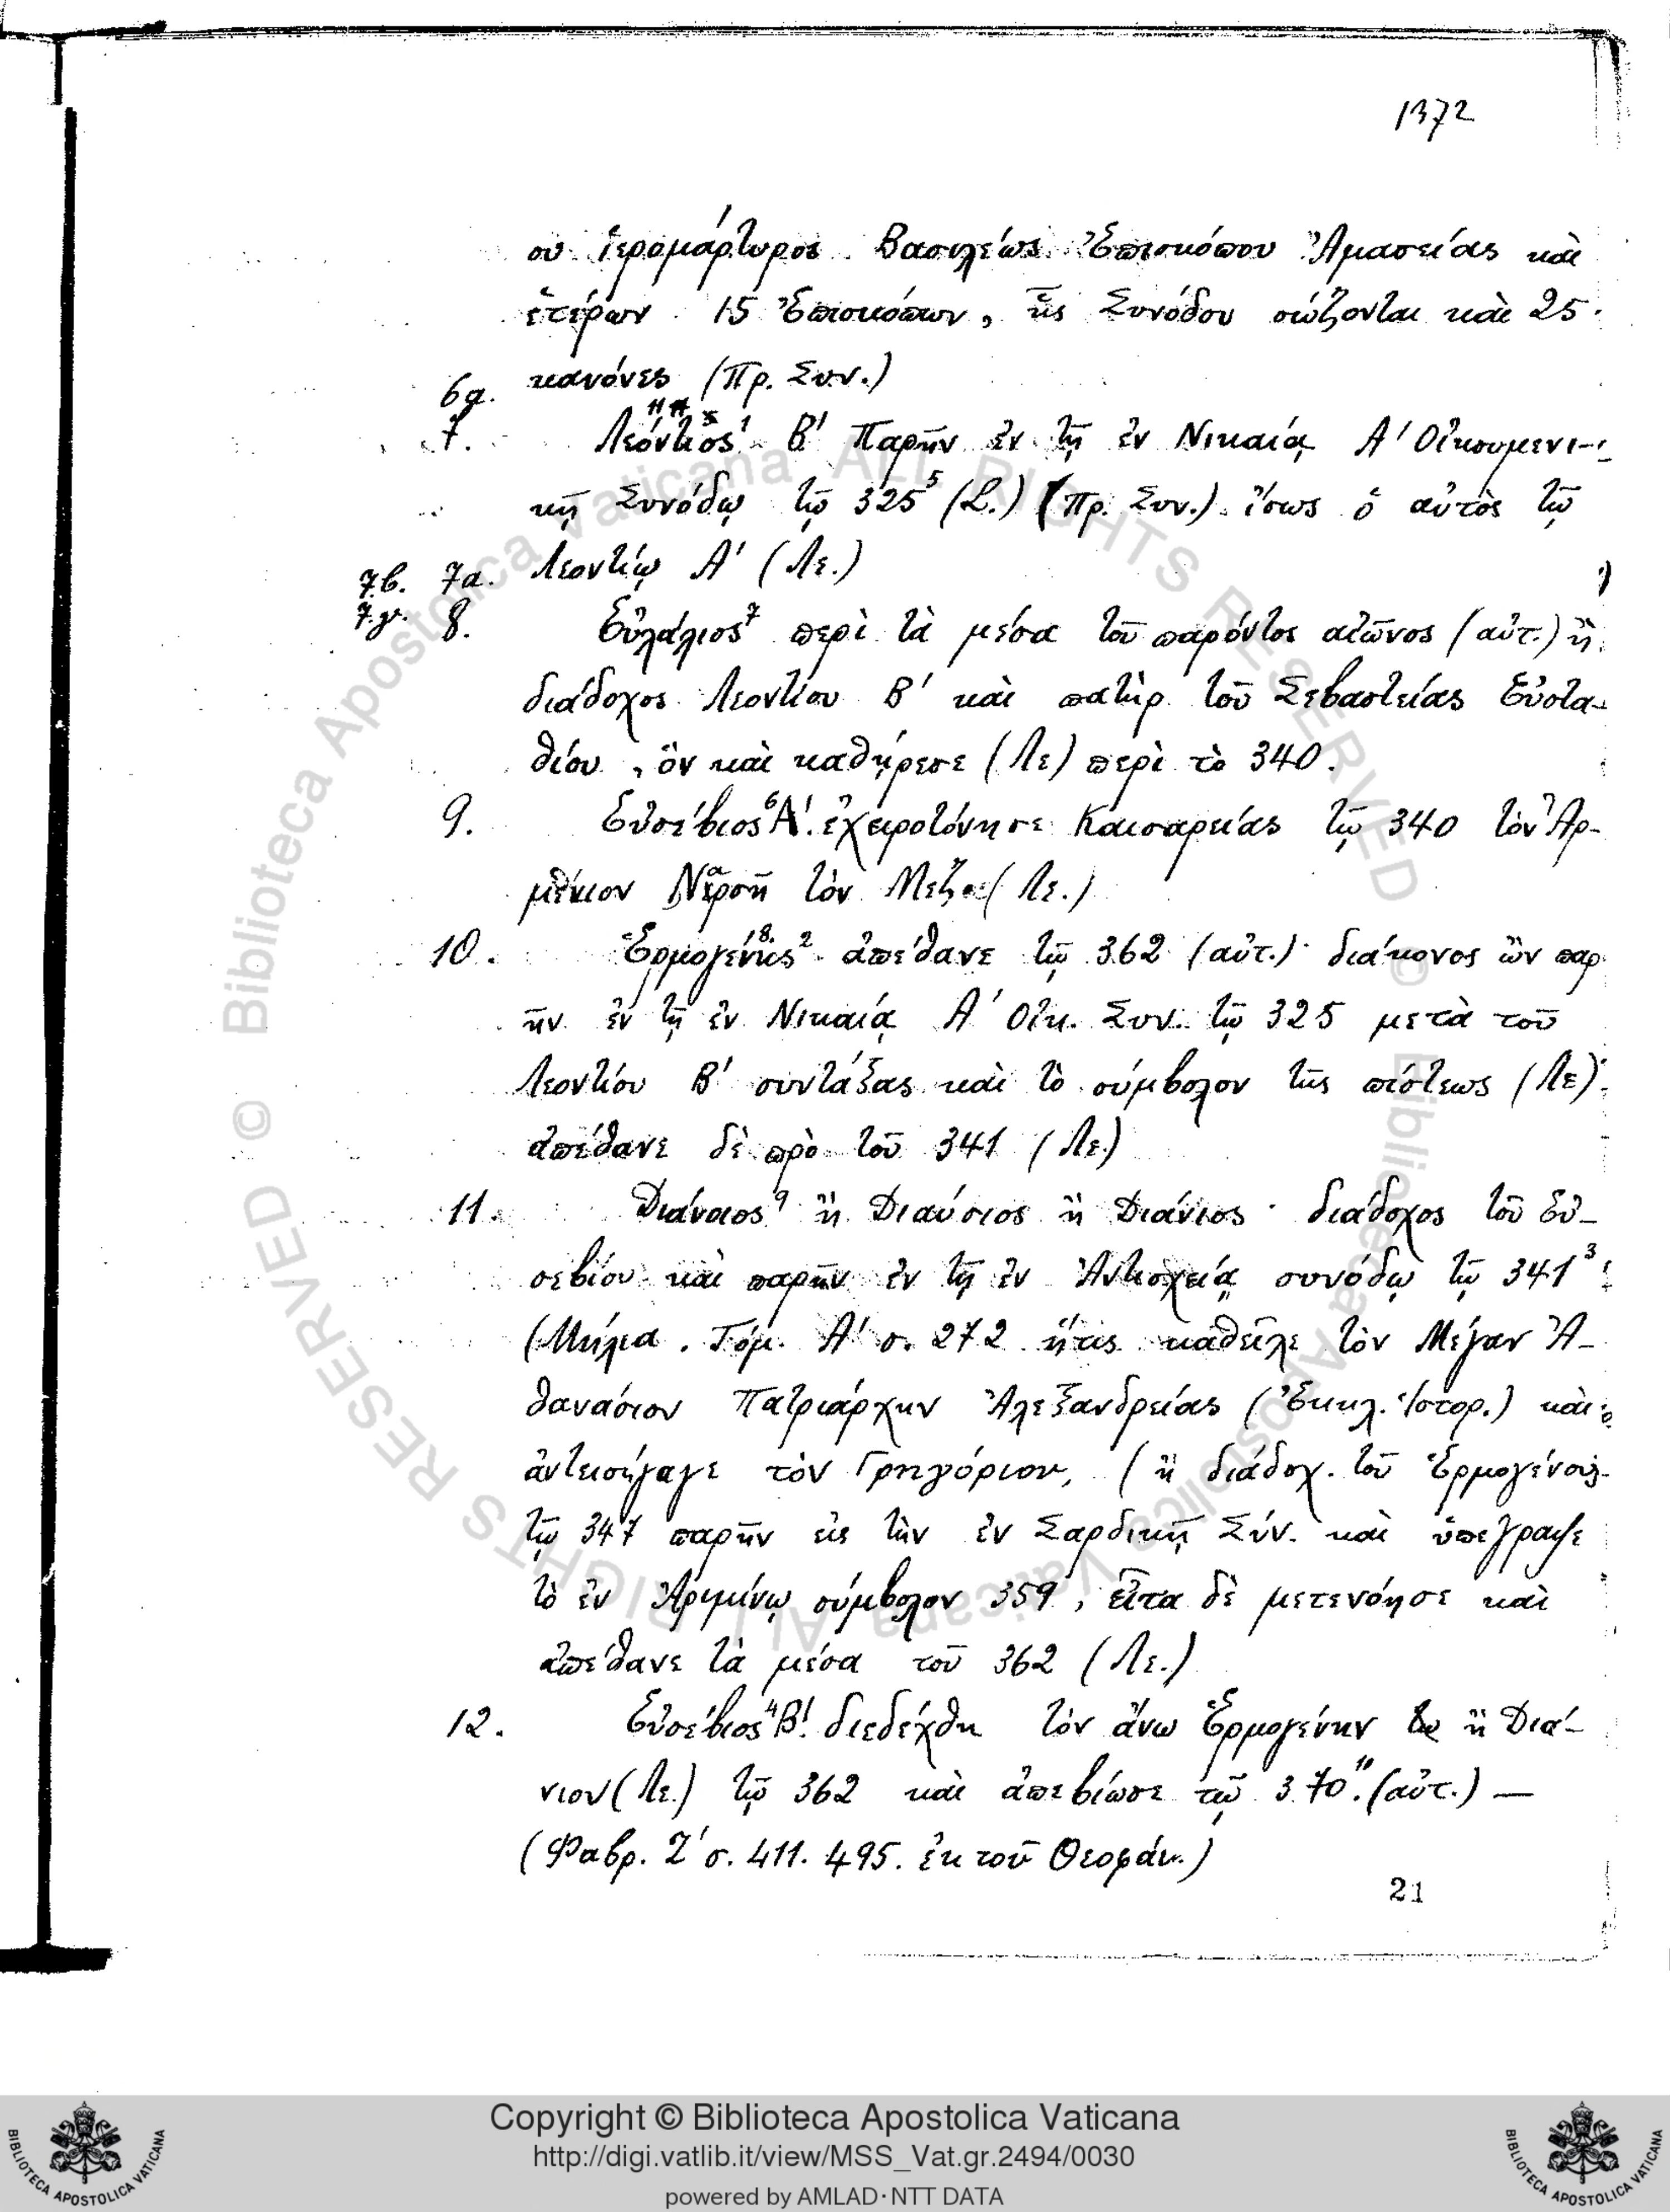 1372
ου ἱερομάρτυρος Βασιλέως Ἐπισκόπου Ἀμασείας καὶ
ἑτέρων 15 Ἐπισκόπων, ἧς Συνόδου σώζονται καὶ 25
κανόνες (Πρ. Συν.)
6α.
7. Λεόντιος Β' Παρῆν ἐν τῇ ἐν Νικαίᾳ Α' Οἰκουμενι-
κῇ Συνόδῳ τῷ 325⁵ (L.) (Πρ. Συν.) ἴσως ὁ αὐτὸς τῷ
Λεοντίῳ Α' (Λε.)
7β. 7α.
7γ. 8. Εὐλάλιος⁷ περὶ τὰ μέσα τοῦ παρόντος αἰῶνος (αὐτ.) ἢ
διάδοχος Λεοντίου Β' καὶ πατὴρ τοῦ Σεβαστείας Εὐστα-
θίου, ὃν καὶ καθῄρεσε (Λε) περὶ τὸ 340.
9. Εὐσέβιος⁶ Α'. ἐχειροτόνησε Καισαρείας τῷ 340 τὸν Ἀρ-
μένιον Νερσῆ τὸν Μεζ (Λε.)
10. Ἑρμογένης⁸ ² ἀπέθανε τῷ 362 (αὐτ.) διάκονος ὢν παρ
ῆν ἐν τῇ ἐν Νικαίᾳ Α' Οἰκ. Συν. τῷ 325 μετὰ τοῦ
Λεοντίου Β' συντάξας καὶ τὸ σύμβολον τῆς πίστεως (Λε)
ἀπέθανε δὲ πρὸ τοῦ 341 (Λε.)
11. Διάναιος⁹ ἢ Διαύσιος ἢ Διάνιος διάδοχος τοῦ Εὐ-
σεβίου καὶ παρῆν ἐν τῇ ἐν Ἀντιοχείᾳ συνόδῳ τῷ 341³
(Μήλια. Τόμ. Α' σ. 272 ἥτις καθεῖλε τὸν Μέγαν Ἀ-
θανάσιον Πατριάρχην Ἀλεξανδρείας (Ἐκκλ. Ἱστορ.) καὶ
ἀντεισήγαγε τὸν Γρηγόριον, (ἢ διάδοχ. τοῦ Ἑρμογένους
τῷ 347 παρῆν εἰς τὴν ἐν Σαρδικῇ Σύν. καὶ ὑπέγραψε
τὸ ἐν Ἀριμίνῳ σύμβολον 359, εἶτα δὲ μετενόησε καὶ
ἀπέθανε τὰ μέσα τοῦ 362 (Λε.)
12. Εὐσέβιος⁴ Β'. διεδέχθη τὸν ἄνω Ἑρμογένην ἢ Διά-
νιον (Λε.) τῷ 362 καὶ ἀπεβίωσε τῷ 370. (αὐτ.) —
(Φαβρ. Ζ' σ. 411. 495. ἐκ τοῦ Θεοφάν.)
21
Copyright © Biblioteca Apostolica Vaticana
http://digi.vatlib.it/view/MSS_Vat.gr.2494/0030
powered by AMLAD·NTT DATA
BIBLIOTECA APOSTOLICA VATICANA
BIBLIOTECA APOSTOLICA VATICANA
© Biblioteca Apostolica Vaticana ALL RIGHTS RESERVED © Biblioteca Apostolica Vaticana ALL RIGHTS RESERVED